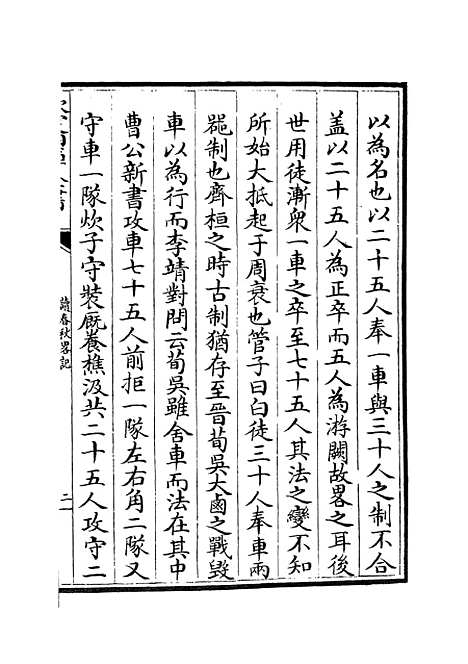 以為名也以二十五人奉一車與三十人之制不合
盖以二十五人為正卒而五人為游闕故畧之耳後
世用徒漸衆一車之卒至七十五人其法之變不知
所始大抵起于周衰也管子曰白徒三十人奉車兩
噐制也齊桓之時古制猶存至晉荀吳大鹵之戰毀
車以為行而李靖對問云荀吳雖舍車而法在其中
曹公新書攻車七十五人前拒一隊左右角二隊又
守車一隊炊子守裝厩養樵汲共二十五人攻守二
讀春秋畧記